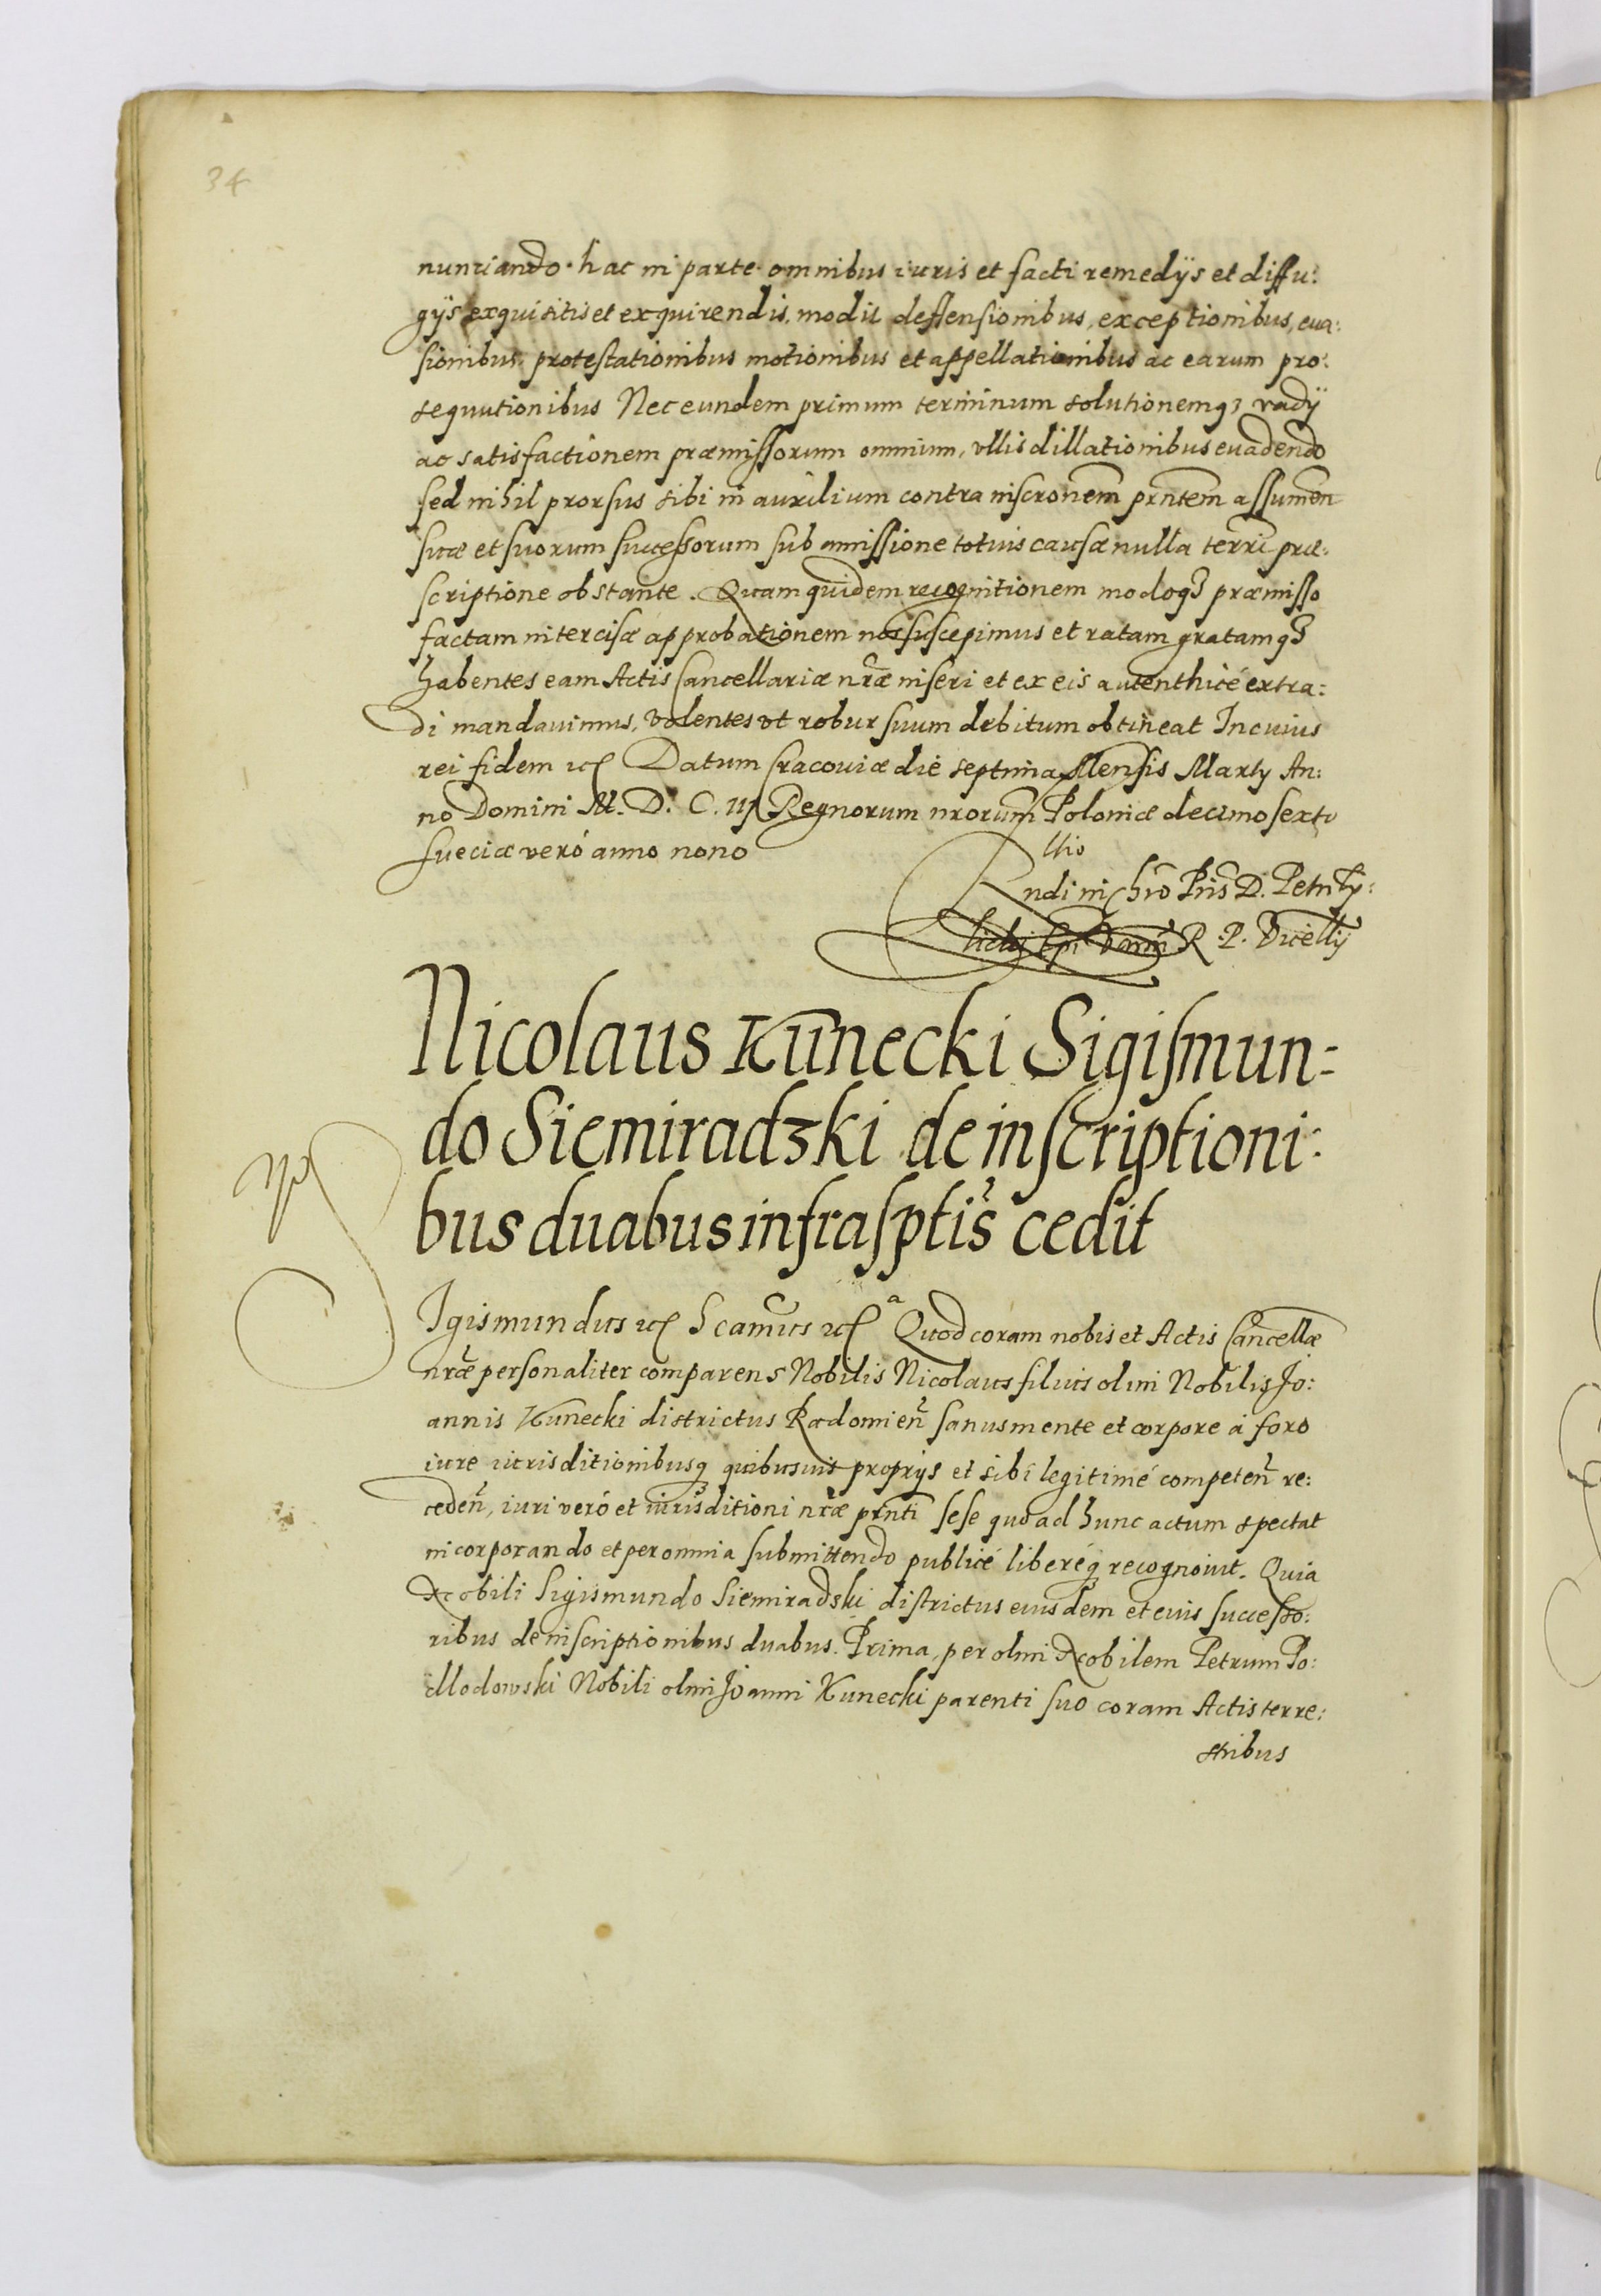 34
nunciando hac in parte omnibus iuris et facti remedijs et diffu:
gijs exquisitis et exquirendis, modis deffensionibus, exceptionibus, eua:
sionibus, protestationibus motionibus et appellationibus ac earum pro:
sequutionibus Nec eundem primum terminum solutionemqз vadij
ac satisfactionem præmissorum omnium, vllis dillationibus euadendo
sed nihil prorsus sibi in auxilium contra inscronem prntem assumen
suæ et suorum successorum sub amissione totius causæ nulla terri præ:
scriptione obstante. Quam quidem recognitionem modoqз præmisso
factam intercisæ approbationem nos suscepimus et ratam gratamqз
habentes eam Actis Cancellariæ nræ inseri et ex eis autenthicé extra:
di mandauimus, volentes vt robur suum debitum obtineat In cuius
rei fidem etc Datum Cracouiæ die septima Mensis Martij An:
no Domini M. D. C. III Regnorum nrorum Poloniæ decimo sexto
sueciæ veró anno nono
Rndi in Chro Pris D. Petri Ty:
licki Epi R. P. Vicellij
Nicolaus Kunecki Sigismun:
do Siemiradzki de inscriptioni:
bus duabus infrasptis cedit
Igismundus etc Quod coram nobis et Actis Cancellæ
nræ personaliter comparens Nobilis Nicolaus filius olim Nobilis Jo:
annis Kunecki districtus Radomien sanus mente et corpore à foro
iure iurisditionibusq quibusuis proprijs et sibi legitimé competen re:
ceden, iuri veró et iurisditioni nræ prnti sese quo ad hunc actum spectat
incorporando et per omnia submittendo publicé liberéq recognouit. Quia
Nobili Sigismundo Siemiradski districtus eiusdem et eius successo:
ribus de inscriptionibus duabus. Prima, per olim Nobilem Petrum Po:
dlodowski Nobili olim Joanni Kunecki parenti suo coram Actis terre:
stribus